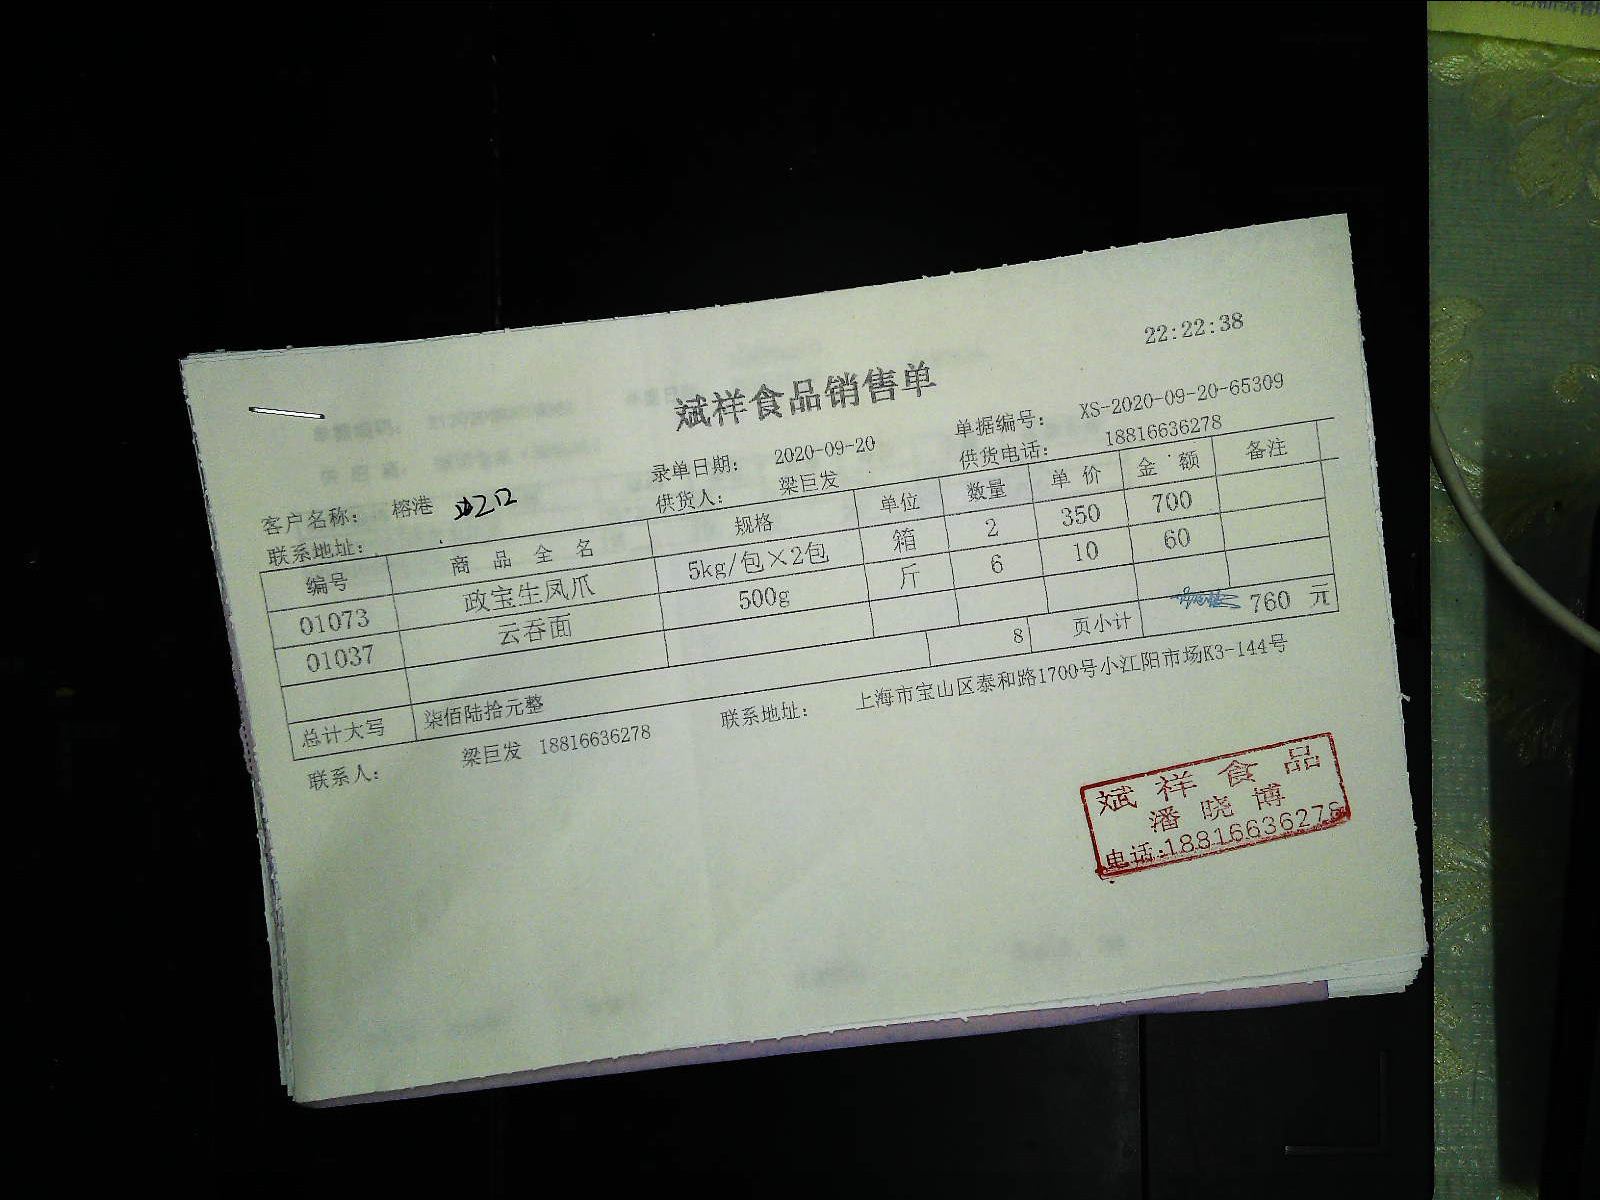 22:22:38
斌祥食品销售单
录单日期: 2020-09-20 单据编号: XS-2020-09-20-65309
客户名称: 榕港 供货人: 梁巨发 供货电话: 18816636278
联系地址:
编号 商品全名 规格 单位 数量 单价 金额 备注
01073 政宝生凤爪 5kg/包×2包 箱 2 350 700
01037 云吞面 500g 斤 6 10 60
总计大写 柒佰陆拾元整 8 页小计 760 元
联系人: 梁巨发 18816636278 联系地址: 上海市宝山区泰和路1700号小江阳市场K3-144号
斌祥食品
潘晓博
电话:18816636278